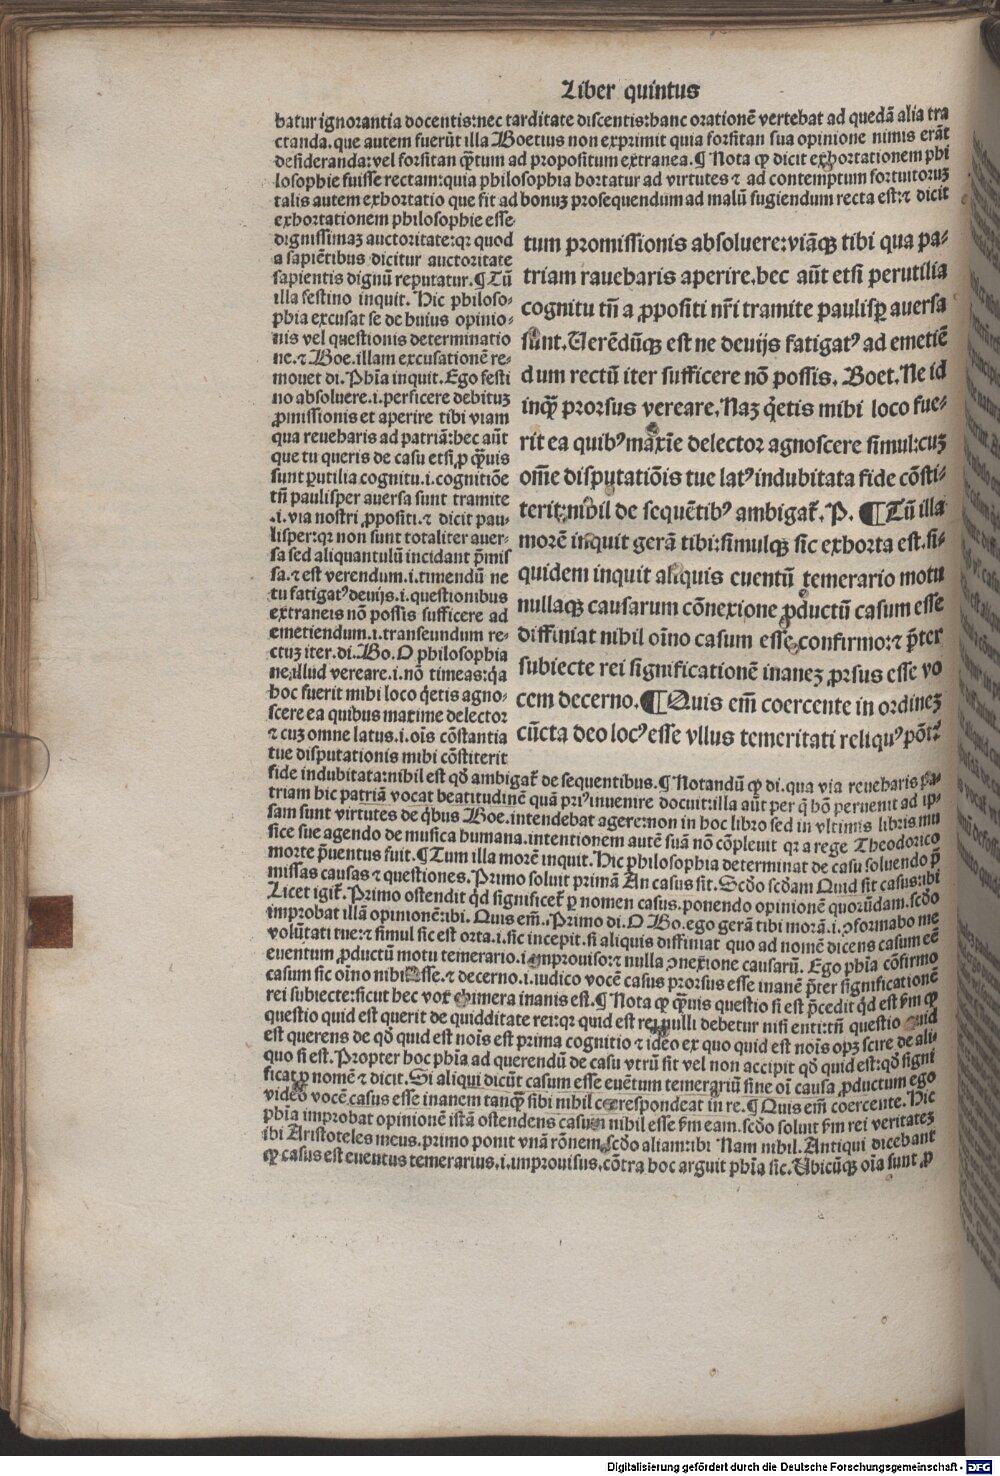 Liber quintus
batur ignorantia docentis:nec tarditate discentis:hanc orationē vertebat ad quedā alia tra
ctanda.que autem fuerūt illa Boetius non exprimit quia forsitan sua opinione nimis erāt
desideranda:vel forsitan q̄tum ad propositum extranea.¶ Nota ꝙ dicit exhortationem phi
losophie fuisse rectam:quia philosophia hortatur ad virtutes ⁊ ad contemptum fortuitoruꝫ
talis autem exhortatio que fit ad bonuꝫ prosequendum ad malū fugiendum recta est:⁊ dicit
exhortationem philosophie esse
dignissimaꝫ auctoritate:qꝛ quod
a sapiētibus dicitur auctoritate
sapientis dignū reputatur.¶Tū
illa festino inquit. Hic philoso-
phia excusat se de huius opinio-
nis vel questionis determinatio
ne.⁊ Boe.illam excusationē re-
mouet di.Phīa inquit.Ego festi
no absoluere.i.perficere debituꝫ
ꝓmissionis et aperire tibi viam
qua reueharis ad patriā:hec aūt
que tu queris de casu etsi,ꝓ q̄uis
sunt ꝑutilia cognitu.i.cognitiōe
tn̄ paulisper auersa sunt tramite
.i.via nostri ꝓpositi.⁊ dicit pau-
lisper:qꝛ non sunt totaliter auer-
sa sed aliquantulū incidant p̄mis
sa.⁊ est verendum.i.timendū ne
tu fatigatꝰ deuijs.i.questionibus
extraneis nō possis sufficere ad
emetiendum.i.transeundum re-
ctuꝫ iter.di.Bo.O philosophia
ne illud vereare.i.nō timeas:q̄a
hoc fuerit mihi loco q̄etis agno-
scere ea quibus maxime delector
⁊ cuꝫ omne latus.i.oīs cōstantia
tue disputationis mihi cōstiterit
tum promissionis absoluere:viāqꝫ tibi qua pa-
triam rauebaris aperire.hec aūt etsi perutilia
cognitu tn̄ a ꝓpositi nr̄i tramite paulisꝑ auersa
sunt.Uerēdūqꝫ est ne deuijs fatigatꝰ ad emetiē
dum rectū iter sufficere nō possis. Boet. Ne id
inq̄ prorsus vereare.Naꝫ q̄etis mihi loco fue-
rit ea quibꝰ maxīe delector agnoscere simul:cuꝫ
om̄e disputatiōis tue latꝰ indubitata fide cōsti-
terit:nihil de sequētibꝰ ambigat̄. P. ¶Tū illa
morē inquit gerā tibi:simulqꝫ sic exhorta est.si-
quidem inquit aliquis euentū temerario motu
nullaqꝫ causarum cōnexione ꝓductū casum esse
diffiniat nihil oīno casum esse confirmo:⁊ p̄ter
subiecte rei significationē inaneꝫ ꝓrsus esse vo
cem decerno.¶Quis em̄ coercente in ordineꝫ
cūcta deo locꝰ esse vllus temeritati reliquꝰ pōt?
fide indubitata:nihil est qd̄ ambigat̄ de sequentibus.¶ Notandū ꝙ di.qua via reueharis pa-
triam hic patriā vocat beatitudinē quā priꝰ inuenire docuit:illa aūt per q̄ hō peruenit ad ip-
sam sunt virtutes de q̄bus Boe.intendebat agere:non in hoc libro sed in vltimis libris mu
sice sue agendo de musica humana.intentionem autē suā nō cōpleuit qꝛ a rege Theodorico
morte p̄uentus fuit.¶Tum illa morē inquit.Hic philosophia determinat de casu soluendo p̄
missas causas ⁊ questiones.Primo soluit primā An casus sit.Scd̄o scd̄am Quid sit casus:ibi
Licet igit̄.Primo ostendit q̄d significet̄ ꝑ nomen casus.ponendo opinionē quorūdam.scd̄o
improbat illā opinionē:ibi.Quis em̄.Primo di.O Bo.ego gerā tibi morā.i.ɔformabo me
volūtati tue:⁊ simul sic est orta.i.sic incepit.si aliquis diffiniat quo ad nomē dicens casum eē
euentum ꝓductū motu temerario.i.improuiso:⁊ nulla ɔnexione causarū. Ego phīa cōfirmo
casum sic oīno nihil esse.⁊ decerno.i.iudico vocē casus prorsus esse inanē p̄ter significationē
rei subiecte:sicut hec vox chimera inanis est.¶ Nota ꝙ q̄uis questio si est p̄cedit q̄d est s̄m ꝙ
questio quid est querit de quidditate rei:qꝛ quid est rei nulli debetur nisi enti:tn̄ questio quid
est querens de qd̄ quid est noīs est prima cognitio ⁊ ideo ex quo quid est noīs opꝫ scire de ali
quo si est.Propter hoc phīa ad querendū de casu vtrū sit vel non accipit qd̄ quid est:qd̄ signi
ficat̄ ꝑ nomē ⁊ dicit.Si aliqui dicūt casum esse euētum temerariū sine oī causa ꝓductum ego
video vocē casus esse inanem tanq̄ sibi nihil correspondeat in re.¶ Quis em̄ coercente.Hic
phīa improbat opinionē istā ostendens casum nihil esse s̄m eam.scd̄o soluit s̄m rei veritateꝫ
ibi Aristoteles meus.primo ponit vnā rōnem.scd̄o aliam:ibi Nam nihil.Antiqui dicebant
ꝙ casus est euentus temerarius.i.improuisus.cōtra hoc arguit phīa sic.Ubicūqꝫ oīa sunt ꝓ
Digitalisierung gefördert durch die Deutsche Forschungsgemeinschaft - DFG